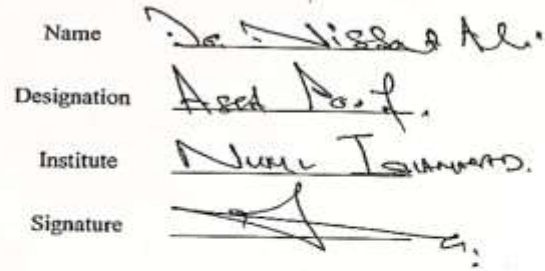 Name Dr. Nissar Ali.
Designation Asst Prof.
Institute NUML Islamabad.
Signature